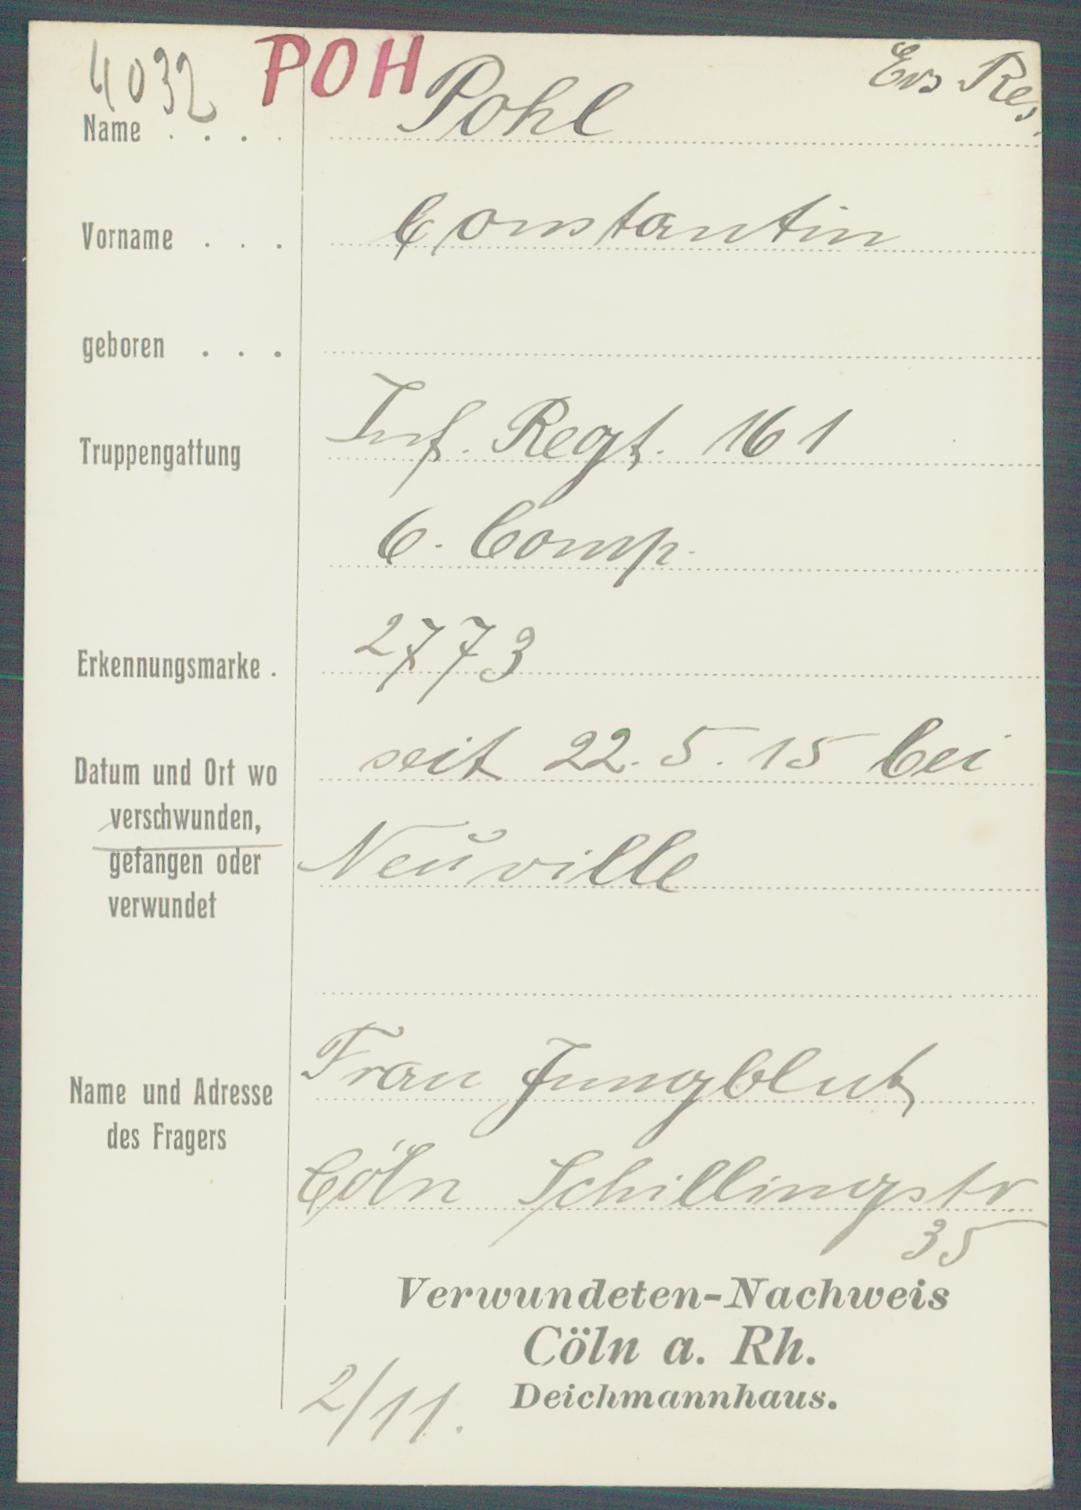 4032 POH Ers Res.
Name . . . . Pohl
Vorname . . . Constantin
geboren . . .
Truppengattung Inf. Regt. 161
6. Comp.
Erkennungsmarke . 2773
Datum und Ort wo seit 22.5.15 bei
verschwunden,
gefangen oder Neuville
verwundet
Name und Adresse Frau Jungblut
des Fragers
Cöln Schillingstr.
35
Verwundeten-Nachweis
Cöln a. Rh.
2/11. Deichmannhaus.